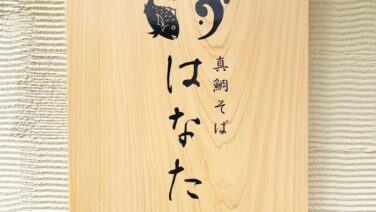 真鯛そば
はなた